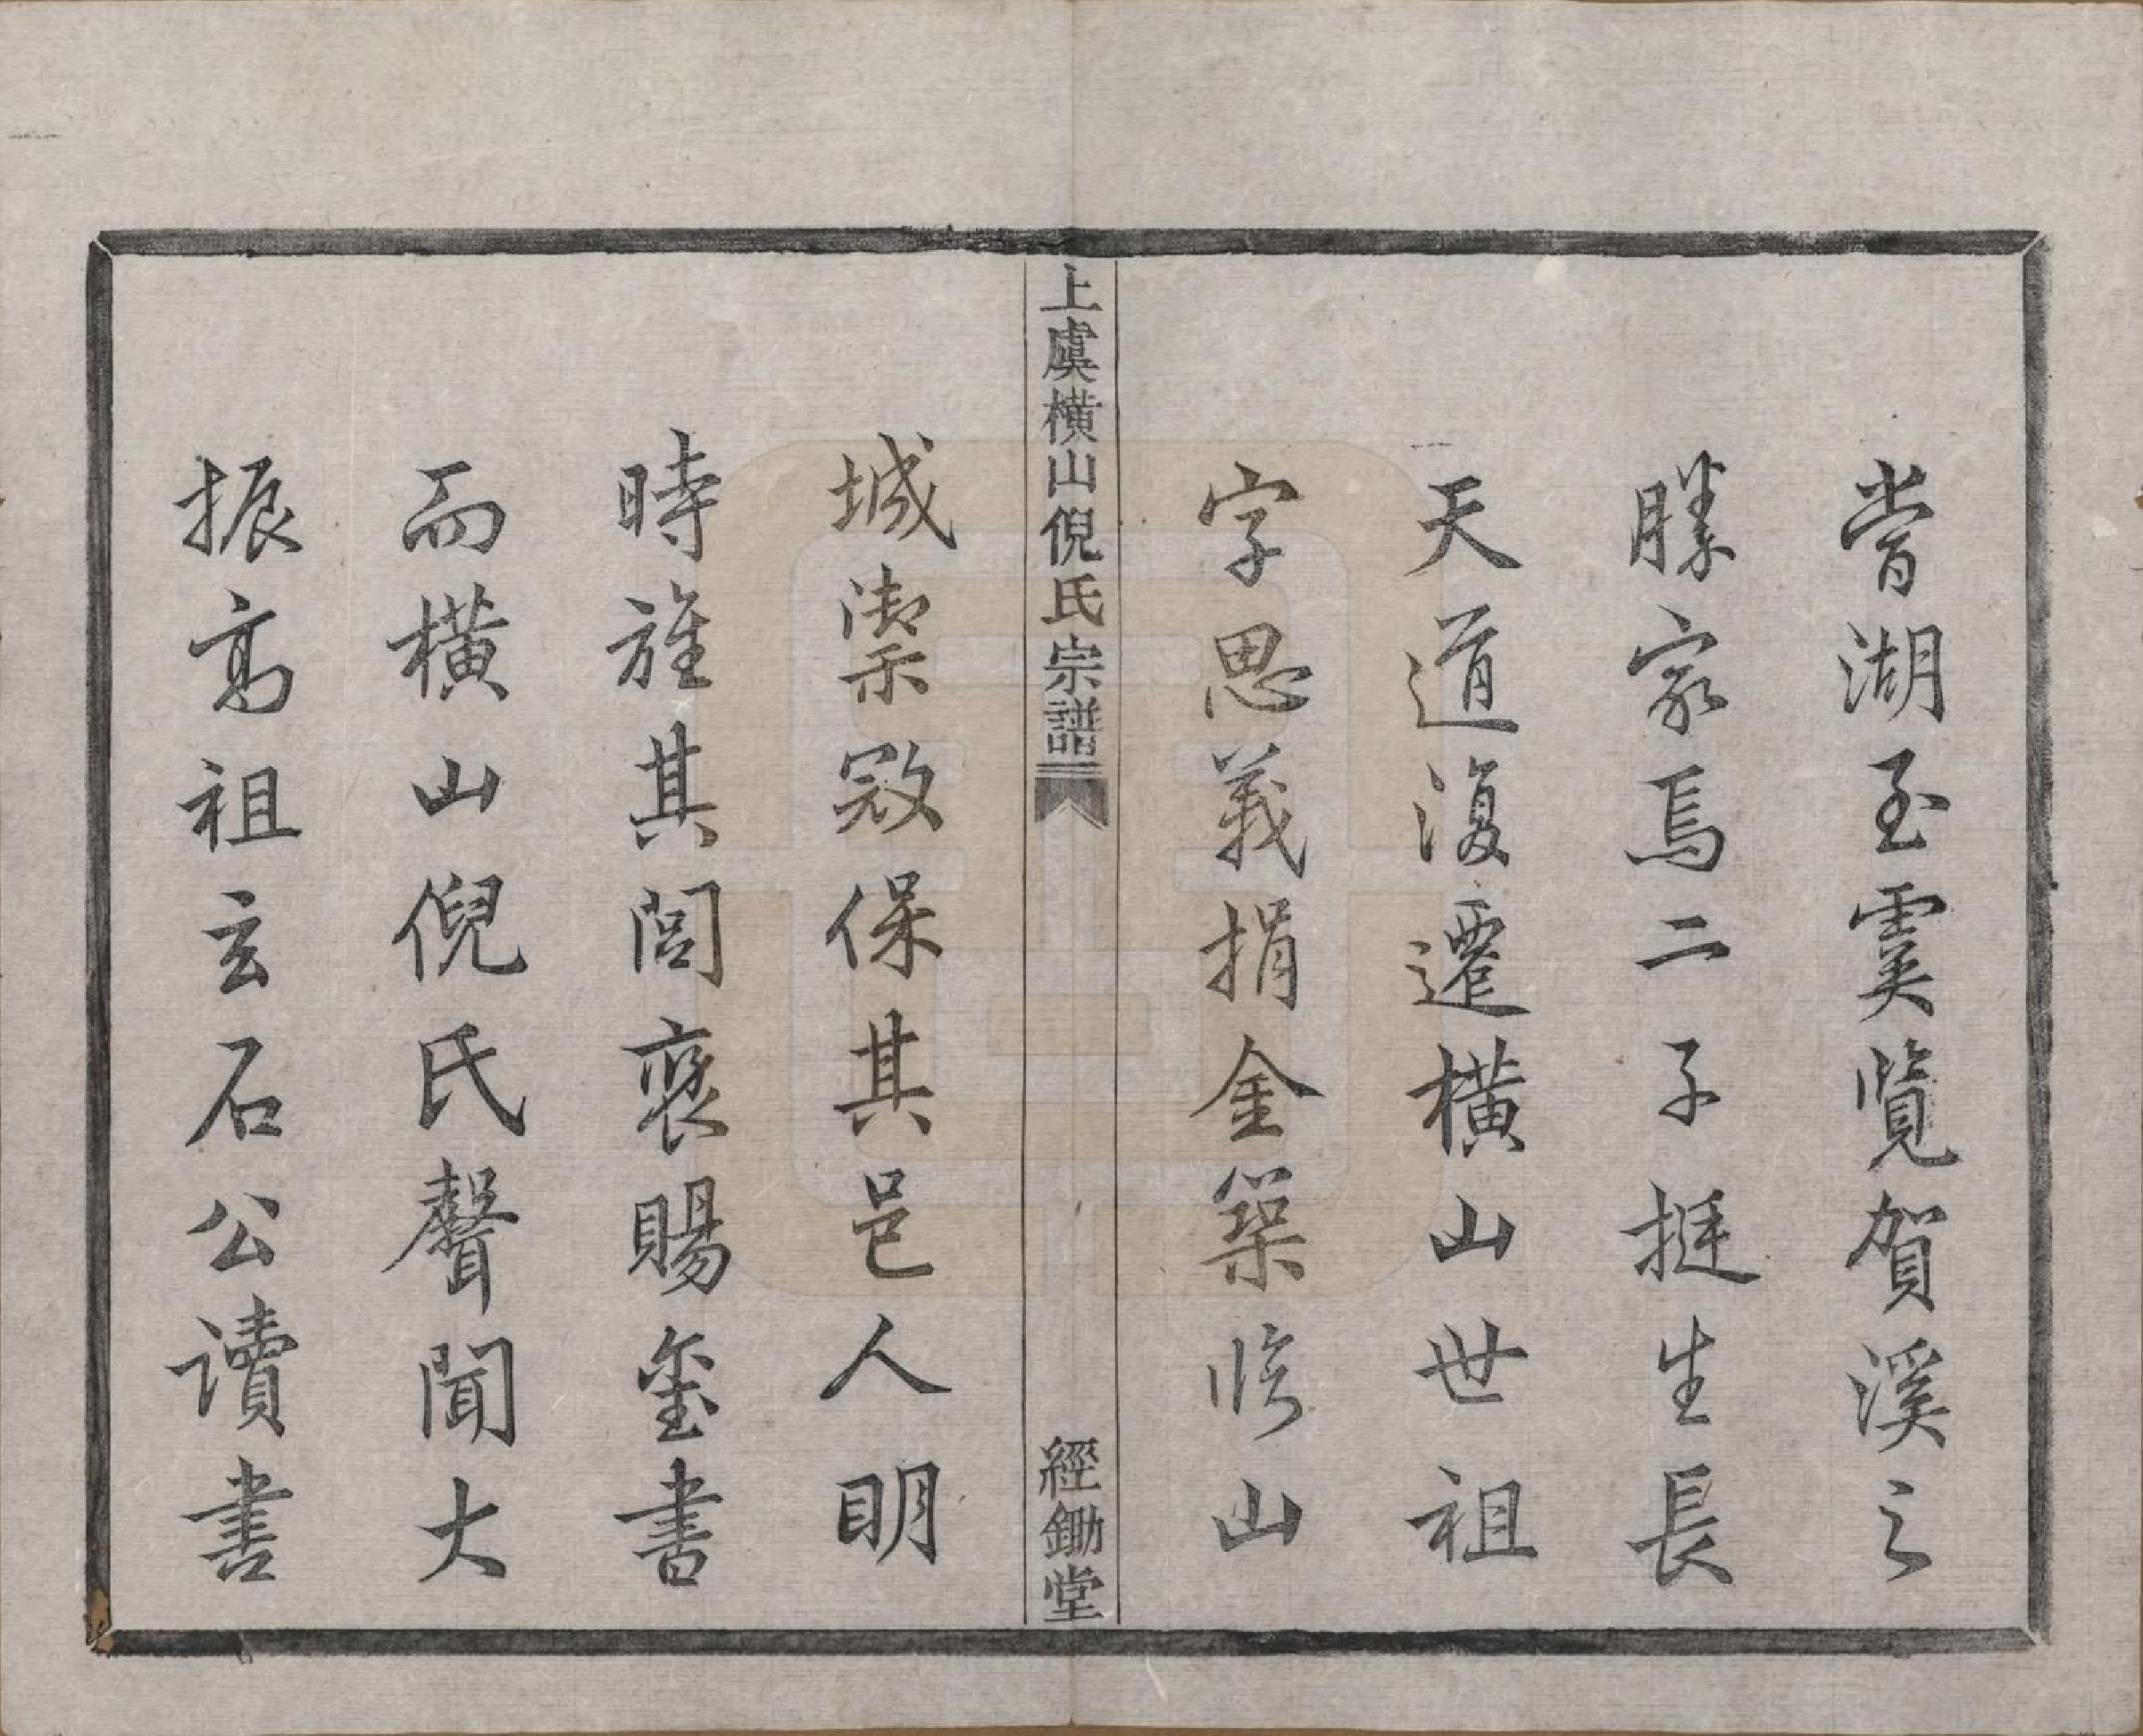 嘗湖至虞覽賀溪之
勝家焉二子挺生長
天道復遷橫山世祖
字思義捐金築臨山
上虞橫山倪氏宗譜
經鋤堂
城禦寇保其邑人明
時旌其閭褒賜璽書
而橫山倪氏聲聞大
振高祖玄石公讀書